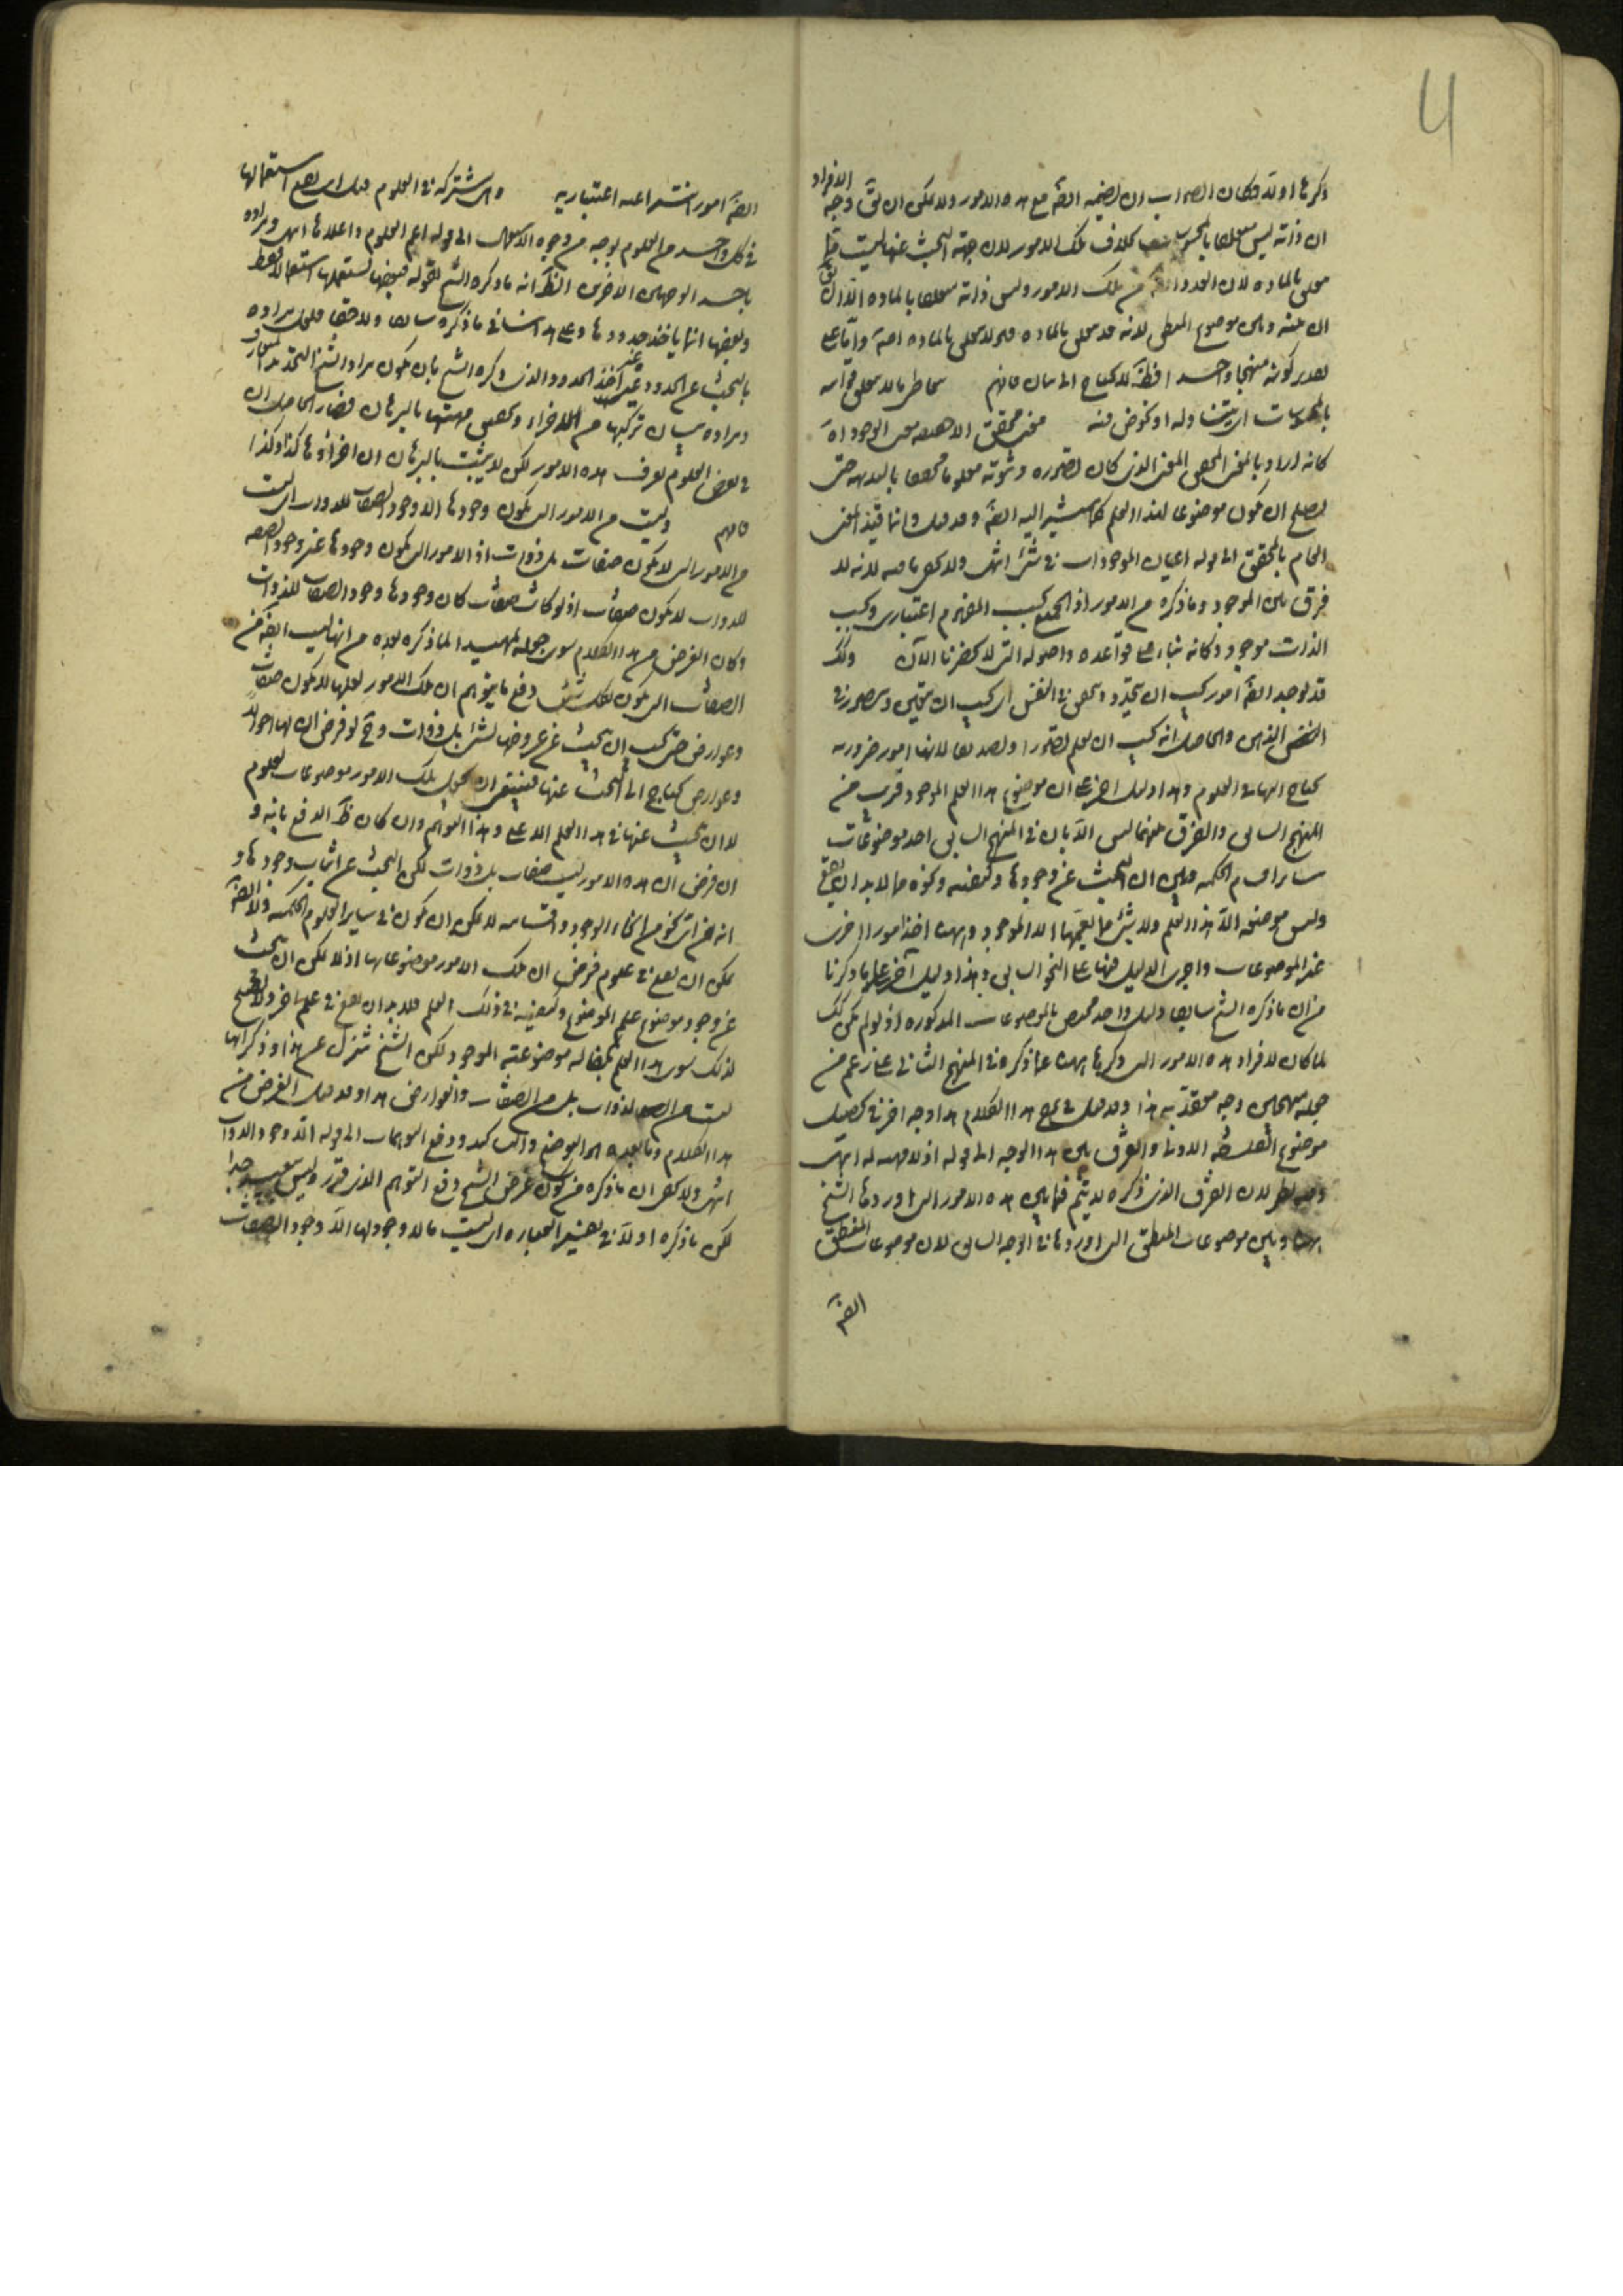 ذكرها اولا فكان الصواب ان يضمه ايضا مع هذه الامور ولا يمكن ان يق وجه الافراد
ان ذاته ليس متعلقا بالمحسوسات بخلاف تلك الامور لان جهة البحث عنها ليست مما
يتعلق بالمادة لان العدد ايضا من تلك الامور وليس ذاته متعلقا بالمادة
بينه وبين موضوع المنطق لانه قد يتعلق بالمادة وقد لا يتعلق بالمادة
تقدير كونه منهجا واحدا ايضا لا يحتاج الى بيان فافهم
بالمحسوسات اي يتناوله او نخوض فيه معنى محقق الا حقيقة معنى الوجود اه
كانه اراد بالمعنى المحقق المعنى الذي كان تصوره وثبوته معلوما محققا بالبديهة حتى
يصلح ان يكون موضوعا لهذا العلم كما سيشير اليه ايضا وقد قيل وانما قيد المعنى
العام بالمحقق الى قوله اعيان الموجودات في شئ انتهى ولا يخفى ما فيه لانه لا
فرق بين الموجود وما ذكره من الامور اذ الجميع بحسب المفهوم اعتباري وبحسب
الذات موجود وكانه بناء على قواعده واصوله التي لا يحضرنا الآن وكك
قد يوجد ايضا امور يجب ان يتحدد ويتحقق في النفس اي يجب ان يتعين ويتصور في
النفس الذهن والحاصل انه يجب ان يعلم تصورا وتصديقا لانها امور ضرورية
يحتاج اليها في العلوم وهذا دليل اخر على ان موضوع هذا العلم الموجود قريب من
المنهج السابق والفرق بينهما ليس الا بان في المنهج السابق اخذ موضوعات
سائر اقسام الحكمة وبين ان البحث عن وجودها وكيفيته ونحوه مما لا بد ان يقع
وليس موضعه الا هذا العلم ولا شئ مما يعمها الا الموجود وههنا اخذ امورا اخرى
غير الموضوعات واجرى الدليل فيها على النحو السابق وهذا دليل آخر على ما ذكرنا
من ان ما ذكره الشيخ سابقا دليل واحد مختص بالموضوعات المذكورة اذ لو لم يكن كك
لما كان لافراد هذه الامور التي ذكرها ههنا عما ذكره في المنهج الثاني على زعم من
جعله منهجين وجه معتد به هذا وقد قيل في شرح هذا الكلام هذا وجه اخر في تحصيل
موضوع الفلسفة الاولى والفرق بين هذا الوجه الى قوله اذ لا مهية له انتهى
وفيه نظر لان الفرق الذي ذكره لا يتم فيما بين هذه الامور التي اوردها الشيخ
ههنا وبين موضوعات المنطق التي اوردها في الوجه السابق لان موضوعات المنطق
ايضا
ايضا امور انتزاعية اعتبارية والمشتركة في العلوم قيل اي يصح استعمالها
في كل واحد من العلوم بوجه من وجوه الاستعمال الى قوله اعم العلوم واعلاها انتهى ومراده
باحد الوجهين الاخرين الظ انه ما ذكره الشيخ بقوله فبعضها يستعملها استعمالا فقط
وبعضها انما ياخذ حدودها وعلى هذا ينافي ما ذكره سابقا ولاحقا فلعل مراده
بالبحث عن الحدود غير اخذ الحدود الذي ذكره الشيخ بان يكون مراد الشيخ التحديد
ومراده بيان تركبها من الاجزاء وتحقيق مهيتها بالبرهان فصار الحاصل ان
في بعض العلوم يعرف هذه الامور لكن لا يثبت بالبرهان ان اجزاؤها كذا وكذا
فافهم وليست من الامور التي يكون وجودها الا وجود الصفات للذوات اي ليست
من الامور التي لا يكون صفات بل ذوات اذ الامور التي يكون وجودها غير وجود الصفة
للذوات لا يكون صفات اذ لو كانت صفات كان وجودها وجود الصفات للذوات
وكان الغرض من هذا الكلام سوى جعله تمهيدا لما ذكره بعده من انها ليست ايضا من
الصفات التي يكون لكل شئ دفع ما يتوهم ان تلك الامور لعلها لا يكون صفات
وعوارض حتى يجب ان يبحث عن عروضها لشئ بل ذوات وح لو فرض ان لها احوالا
وعوارض يحتاج الى البحث عنها فينبغي ان يجعل تلك الامور موضوعات لعلوم
لا ان يبحث عنها في هذا العلم الاعلى وهذا التوهم وان كان ظ الدفع بانه و
ان فرض ان هذه الامور ليست صفات بل ذوات لكن البحث عن اثبات وجودها و
انه من اي نحو من انحاء الوجود واقسامه لا يمكن ان يكون في سائر العلوم الحكمية ولا ايضا
يمكن ان يقع في علوم فرض ان تلك الامور موضوعاتها اذ لا يمكن ان يبحث
عن وجود موضوع علم الموضوع وكيفيته في ذلك العلم فلا بد ان يقع في علم اخر ولا يصلح
لذلك سوى هذا العلم لكن الشيخ تنزل عن هذا وذكر انها
ليست من الذوات بل من الصفات والعوارض هذا وقد قيل الغرض من
هذا الكلام وما بعده التوضيح والتاكيد ودفع التوهمات الى قوله الا وجود الذوات
انتهى ولا يخفى ان ما ذكره من كون غرض الشيخ دفع التوهم الذي قرره ليس ببعيد جدا
لكن ما ذكره اولا في تفسير العبارة اي ليست مما لا وجود لها الا وجود الصفات